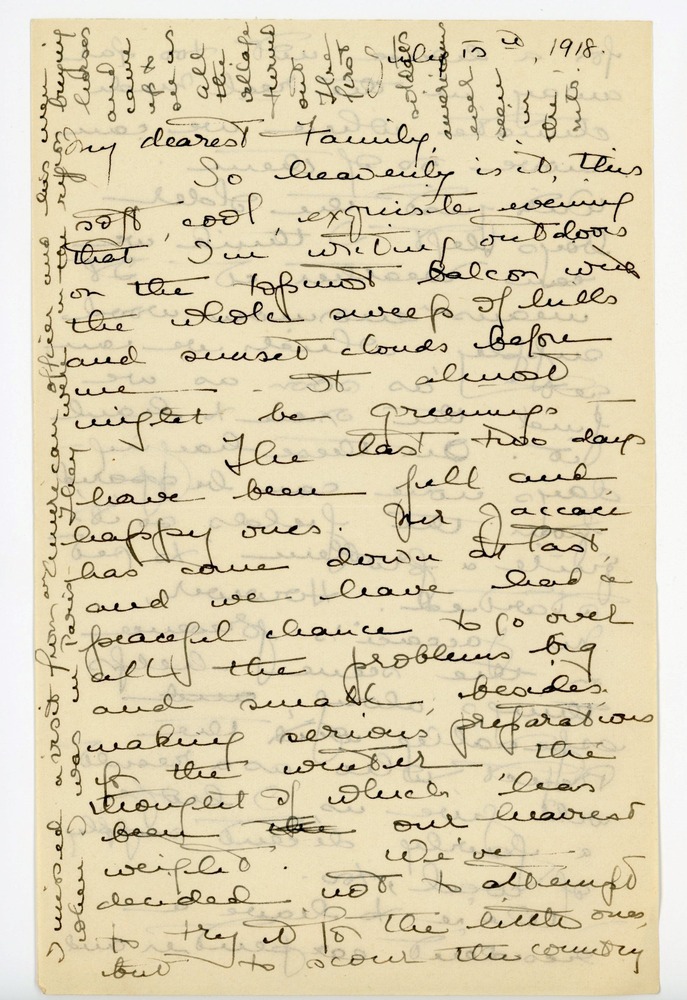 July 15th, 1918.
My dearest Family,
So heavenly is it, this
soft, cool, exquisite evening
that I'm writing outdoors
on the topmost balcon with
the whole sweep of hills
and sunset clouds before
me — It almost
might be Greenings —
The last two days
have been full and
happy ones. Mr Jaccaci
has come down at last,
and we have had a
peaceful chance to go over
all the problems big
and small, besides
making serious preparations
for the winter the
thought of which has
been the our heaviest
weight. We've
decided not to attempt
to try it for the little ones,
but to scour the country
I missed a visit from an American officer and his men
when I was in Paris. They were in the region buying
horses
and
came
up to
see us
All
the
village
turned
out
The
first
soldiers
americans
ever
seen
in
the
mts.